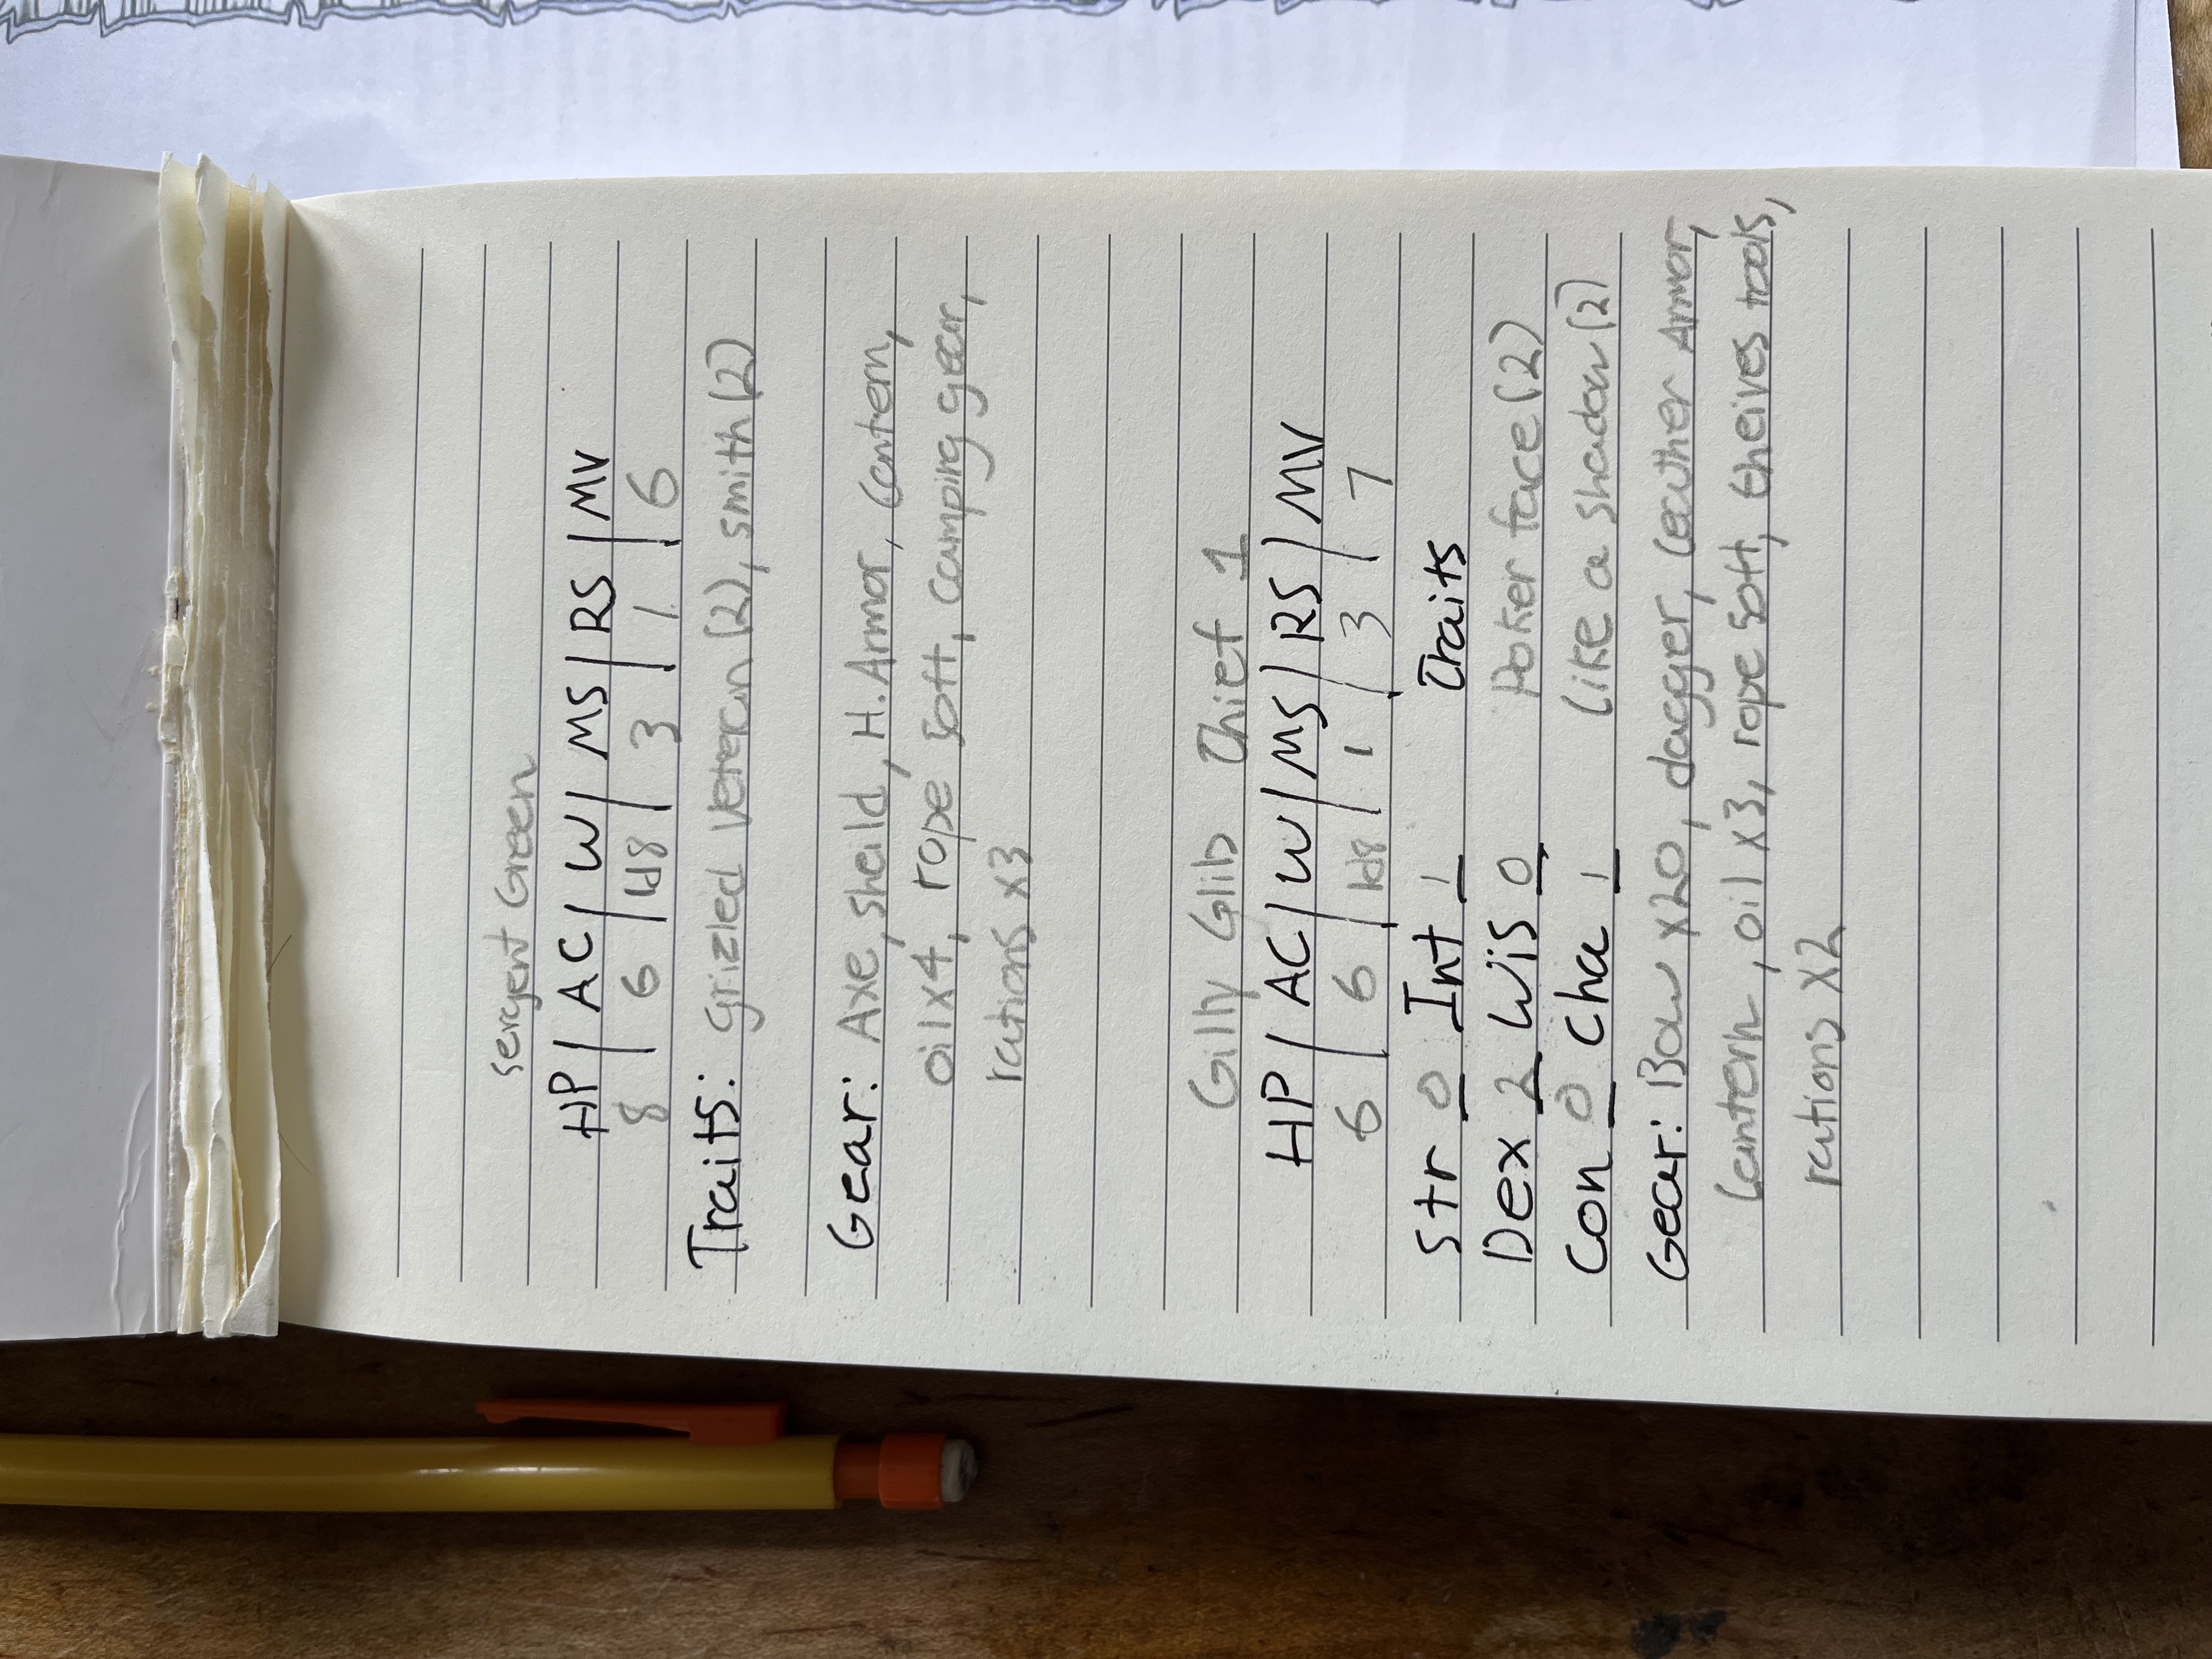 sergent Green
HP / AC / W / MS / RS / MV
8 / 6 / 1d8 / 3 / 1 / 6
Traits: Grizled Veteran (2), smith (2)
Gear: Axe, sheild, H. Armor, Lantern,
oil x4, rope soft, camping gear,
rations x3
Gilly Glib Thief 1
HP / AC / W / MS / RS / MV
6 / 6 / 1d8 / 1 / 3 / 7
Str 0 Int 1 Traits
Dex 2 Wis 0 Poker face (2)
Con 0 Cha 1 Like a shadow (2)
Gear: Bow x20, dagger, Leather Armor,
Lantern, oil x3, rope soft, theives tools,
rations x2